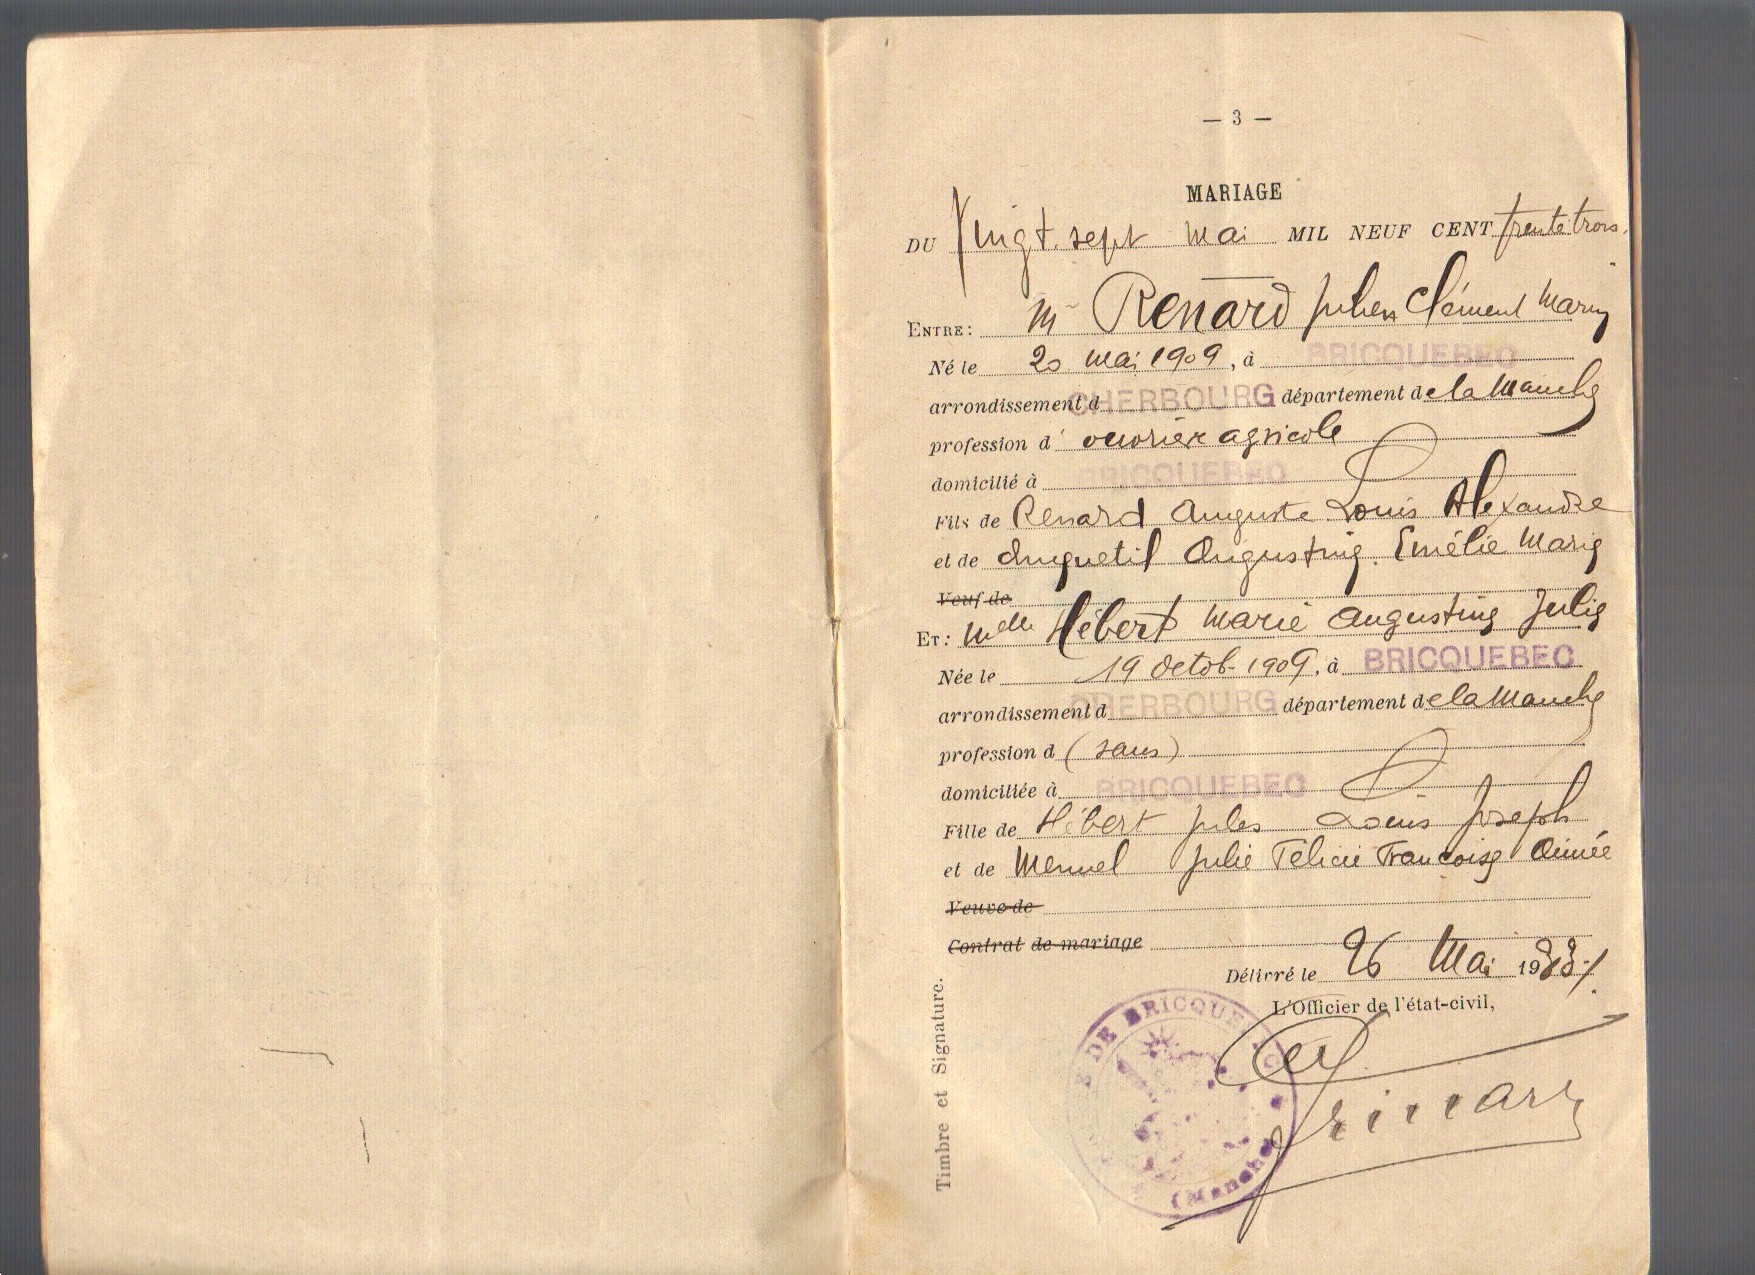 — 3 —
MARIAGE
DU Vingt-sept mai MIL NEUF CENT trente trois.
ENTRE: Mr RENARD Julien Clément Marie
Né le 20 mai 1909, à BRICQUEBEC
arrondissement d CHERBOURG département de la Manche
profession d' ouvrier agricole
domicilié à BRICQUEBEC
Fils de Renard Auguste Louis Alexandre
et de Anquetil Augustine Emélie Marie
Veuf de
ET: Melle Hébert Marie Augustine Julie
Née le 19 octob- 1909, à BRICQUEBEC
arrondissement d CHERBOURG département de la Manche
profession d (sans)
domiciliée à BRICQUEBEC
Fille de Hébert Jules Louis Joseph
et de Mesnel Julie Félicie Françoise Aimée
Veuve de
Contrat de mariage
Délivré le 26 Mai 1933
L'Officier de l'état-civil,
Timbre et Signature.
DE BRICQUEBEC
(Manche)